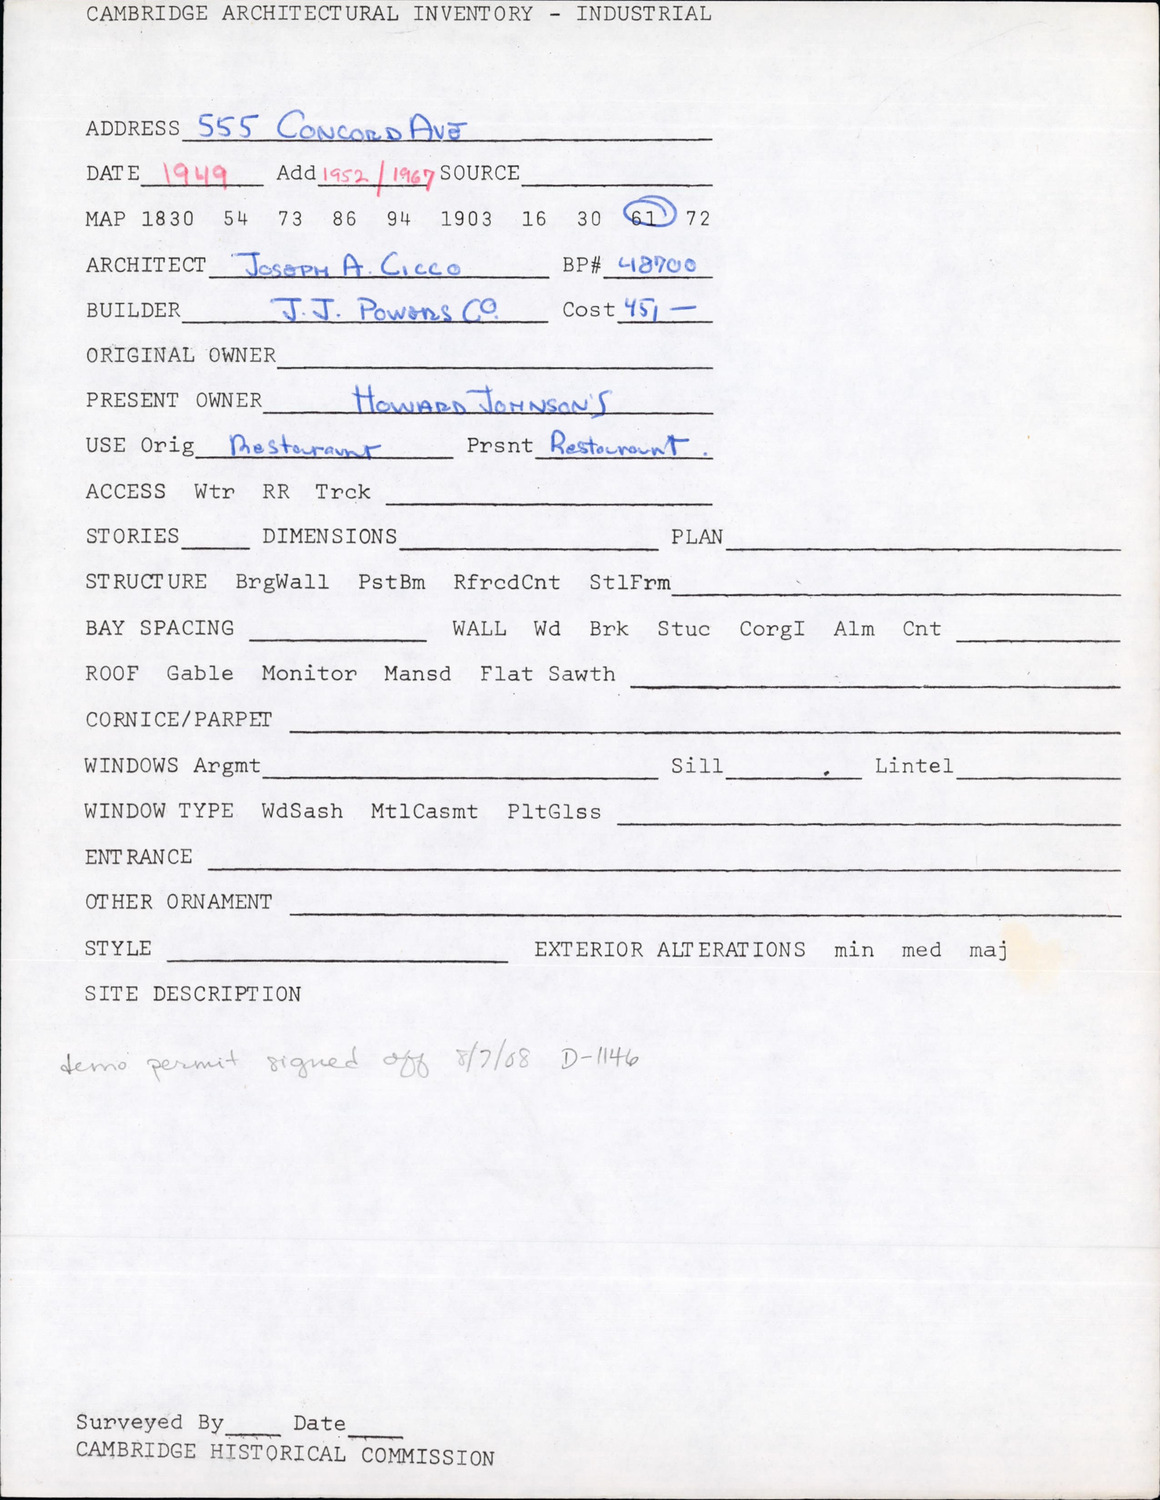 CAMBRIDGE ARCHITECTURAL INVENTORY - INDUSTRIAL
ADDRESS 555 CONCORD AVE
DATE 1949 Add 1952/1967 SOURCE
MAP 1830 54 73 86 94 1903 16 30 61 72
ARCHITECT JOSEPH A. CICCO BP# 48700
BUILDER J.J. POWERS CO. Cost 45, —
ORIGINAL OWNER
PRESENT OWNER HOWARD JOHNSON'S
USE Orig Restaurant Prsnt Restaurant.
ACCESS Wtr RR Trck
STORIES DIMENSIONS PLAN
STRUCTURE BrgWall PstBm RfrcdCnt StlFrm
BAY SPACING WALL Wd Brk Stuc CorgI Alm Cnt
ROOF Gable Monitor Mansd Flat Sawth
CORNICE/PARPET
WINDOWS Argmt Sill Lintel
WINDOW TYPE WdSash MtlCasmt PltGlss
ENTRANCE
OTHER ORNAMENT
STYLE EXTERIOR ALTERATIONS min med maj
SITE DESCRIPTION
demo permit signed off 8/7/08 D-1146
Surveyed By Date
CAMBRIDGE HISTORICAL COMMISSION